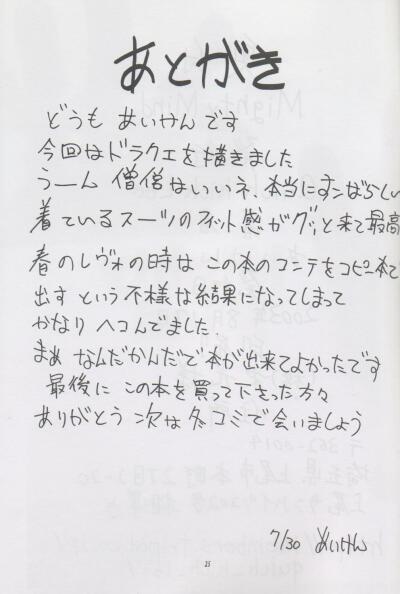 あとがき
どうも めいけんです
今回はドラクエを描きました
うーん 僧侶はいいネ、本当にすンばらしい
着ているスーツのフィット感がグッと来て最高
春のレヴォの時は この本のコンテをコピー本で
出す という不様な結果になってしまって
かなり ヘコんでました.
まぁ なんだかんだで本が出来てよかったです
最後に この本を買って下さった方々
ありがとう 次は冬コミで会いましょう
7/30 めいけん
25